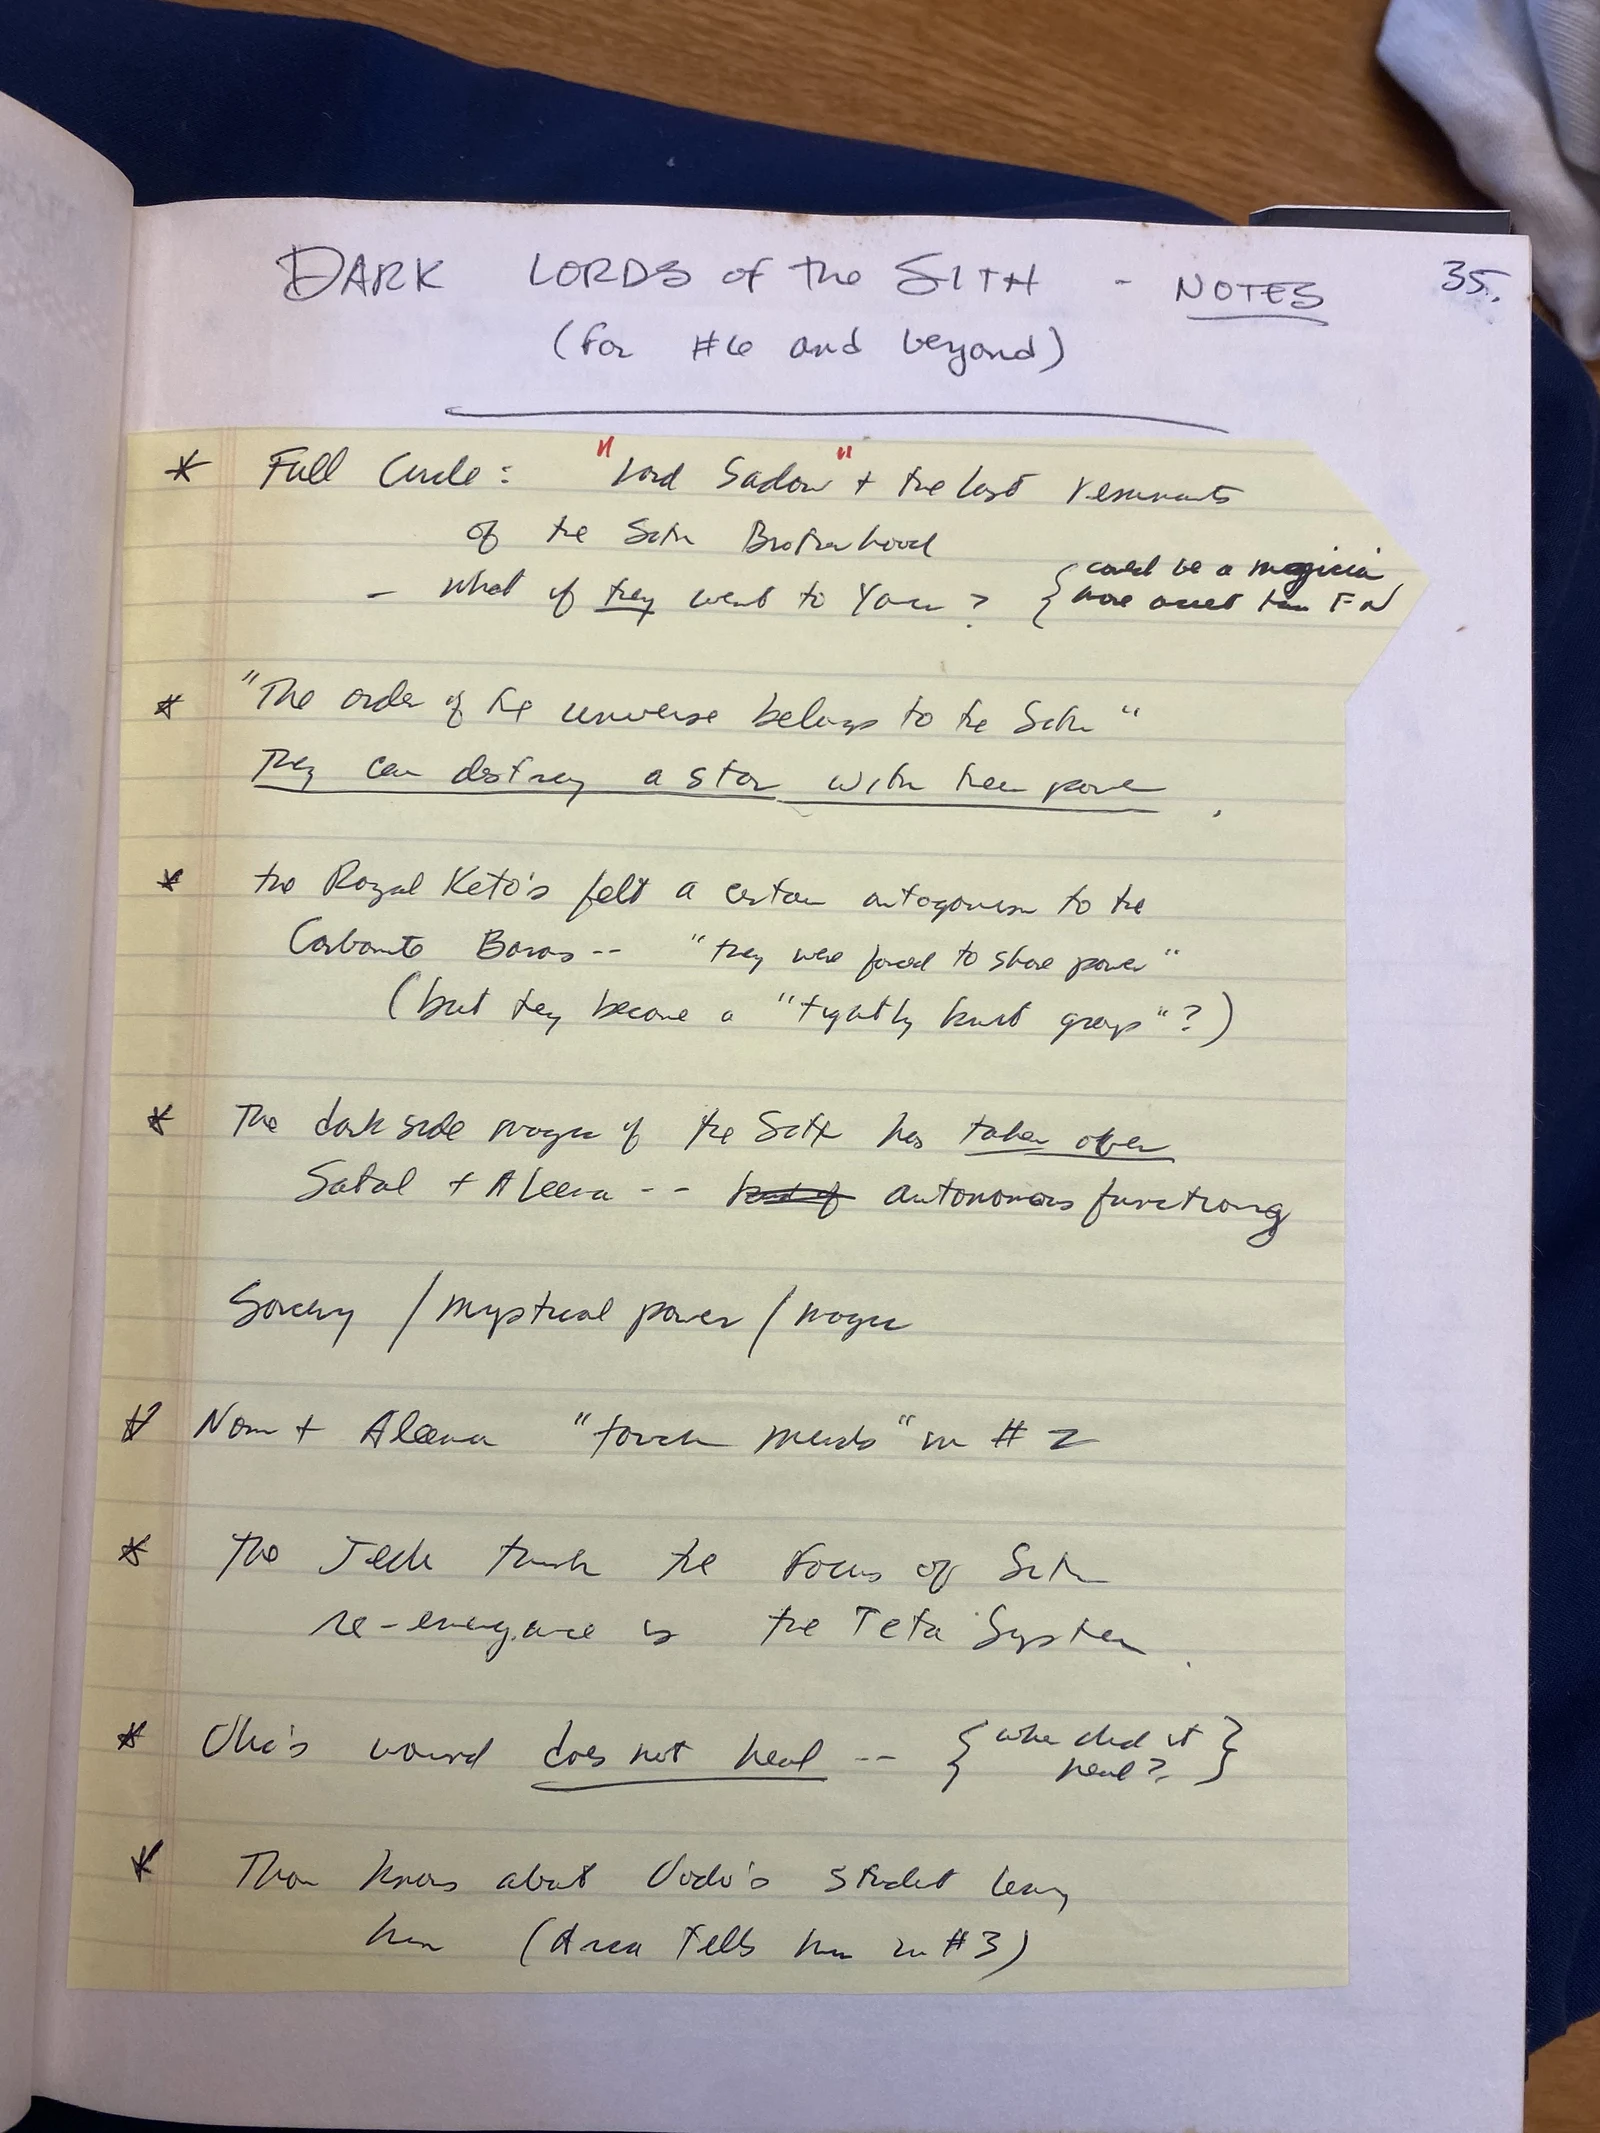 DARK LORDS of the SITH - NOTES
35.
(For #6 and beyond)
* Full Circle: "Lord Sadow" + the last remnants
of the Sith Brotherhood
- what if they went to Yavin?
{ could be a magician
more ancient than F N
* "The order of the universe belongs to the Sith"
They can destroy a star with their power.
* the Royal Keto's felt a certain antagonism to the
Carbonite Barons -- "they were forced to share power"
(but they became a "tightly knit group"?)
* The dark side magic of the Sith has taken over
Satal + Aleema -- kind of autonomous functioning
Sorcery / mystical power / magic
* Nom + Aleema "touch minds" in #2
* The Jedi think the Focus of Sith
re-emergence is the Teta System.
* Ulic's wound does not heal -- { when did it
heal? }
* Thon knows about Vodo's student leaving
him (Arca tells him in #3)